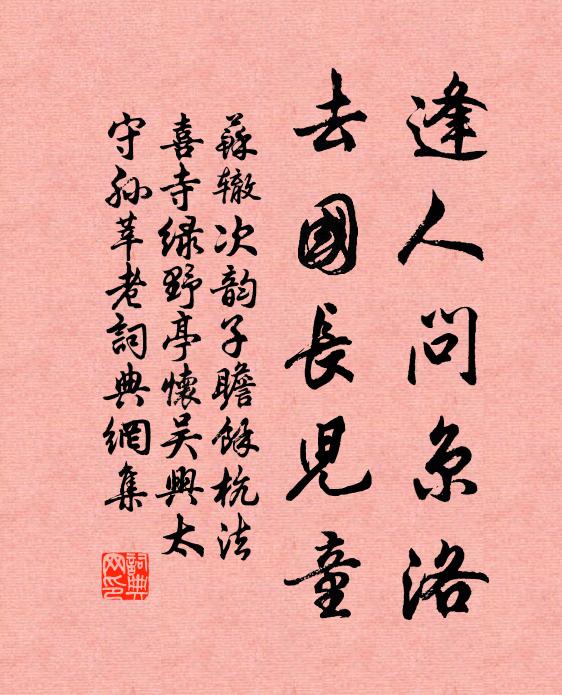 逢人問京洛
去國長児童
蘇辙次韵子瞻餘杭法
喜寺绿野亭懷吴興太
守孙莘老詞典網集
詞典网印